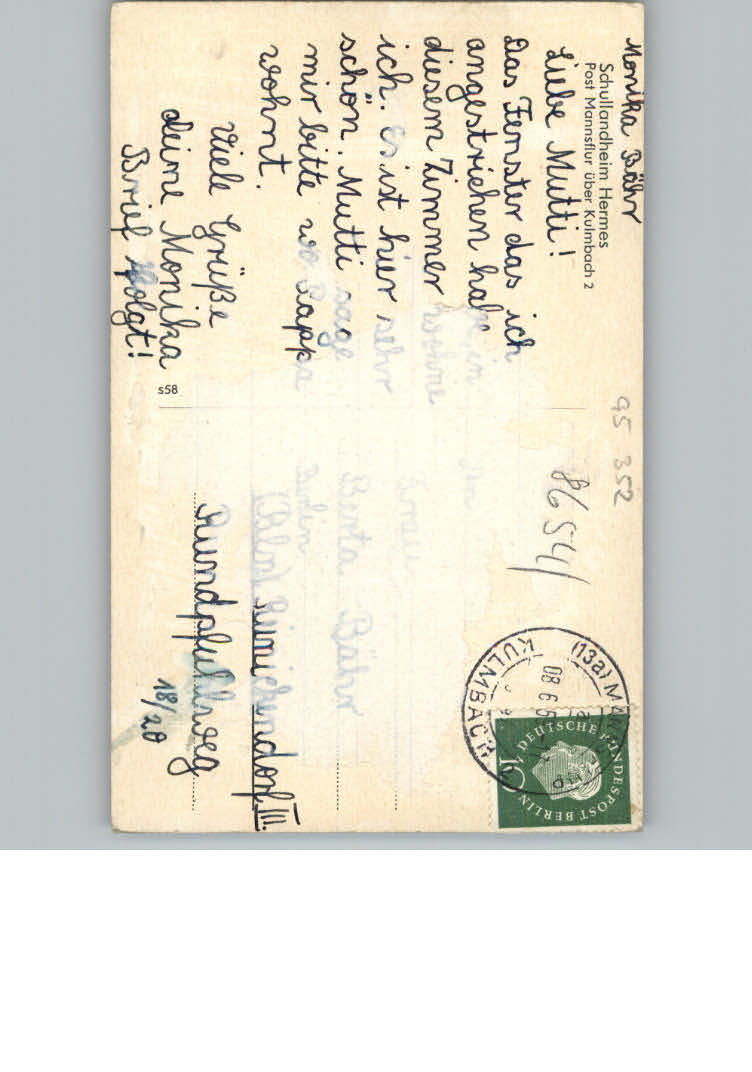 Monika Bähr
Schullandheim Hermes
Post Mannsflur über Kulmbach 2
Liebe Mutti!
Das Fenster das ich
angestrichen habe in
diesem Zimmer wohne
ich. es ist hier sehr
schön. Mutti sage
mir bitte wo Pappa
wohnt.
Viele Grüße
deine Monika
Brief folgt!
s58
95 352
8654/
(13a)
KULMBACH
DEUTSCHE BUNDESPOST BERLIN
10
An
Frau
Berta Bähr
Berlin
(Bln) Reinickendorf III.
Rundpfuhlweg
18/20